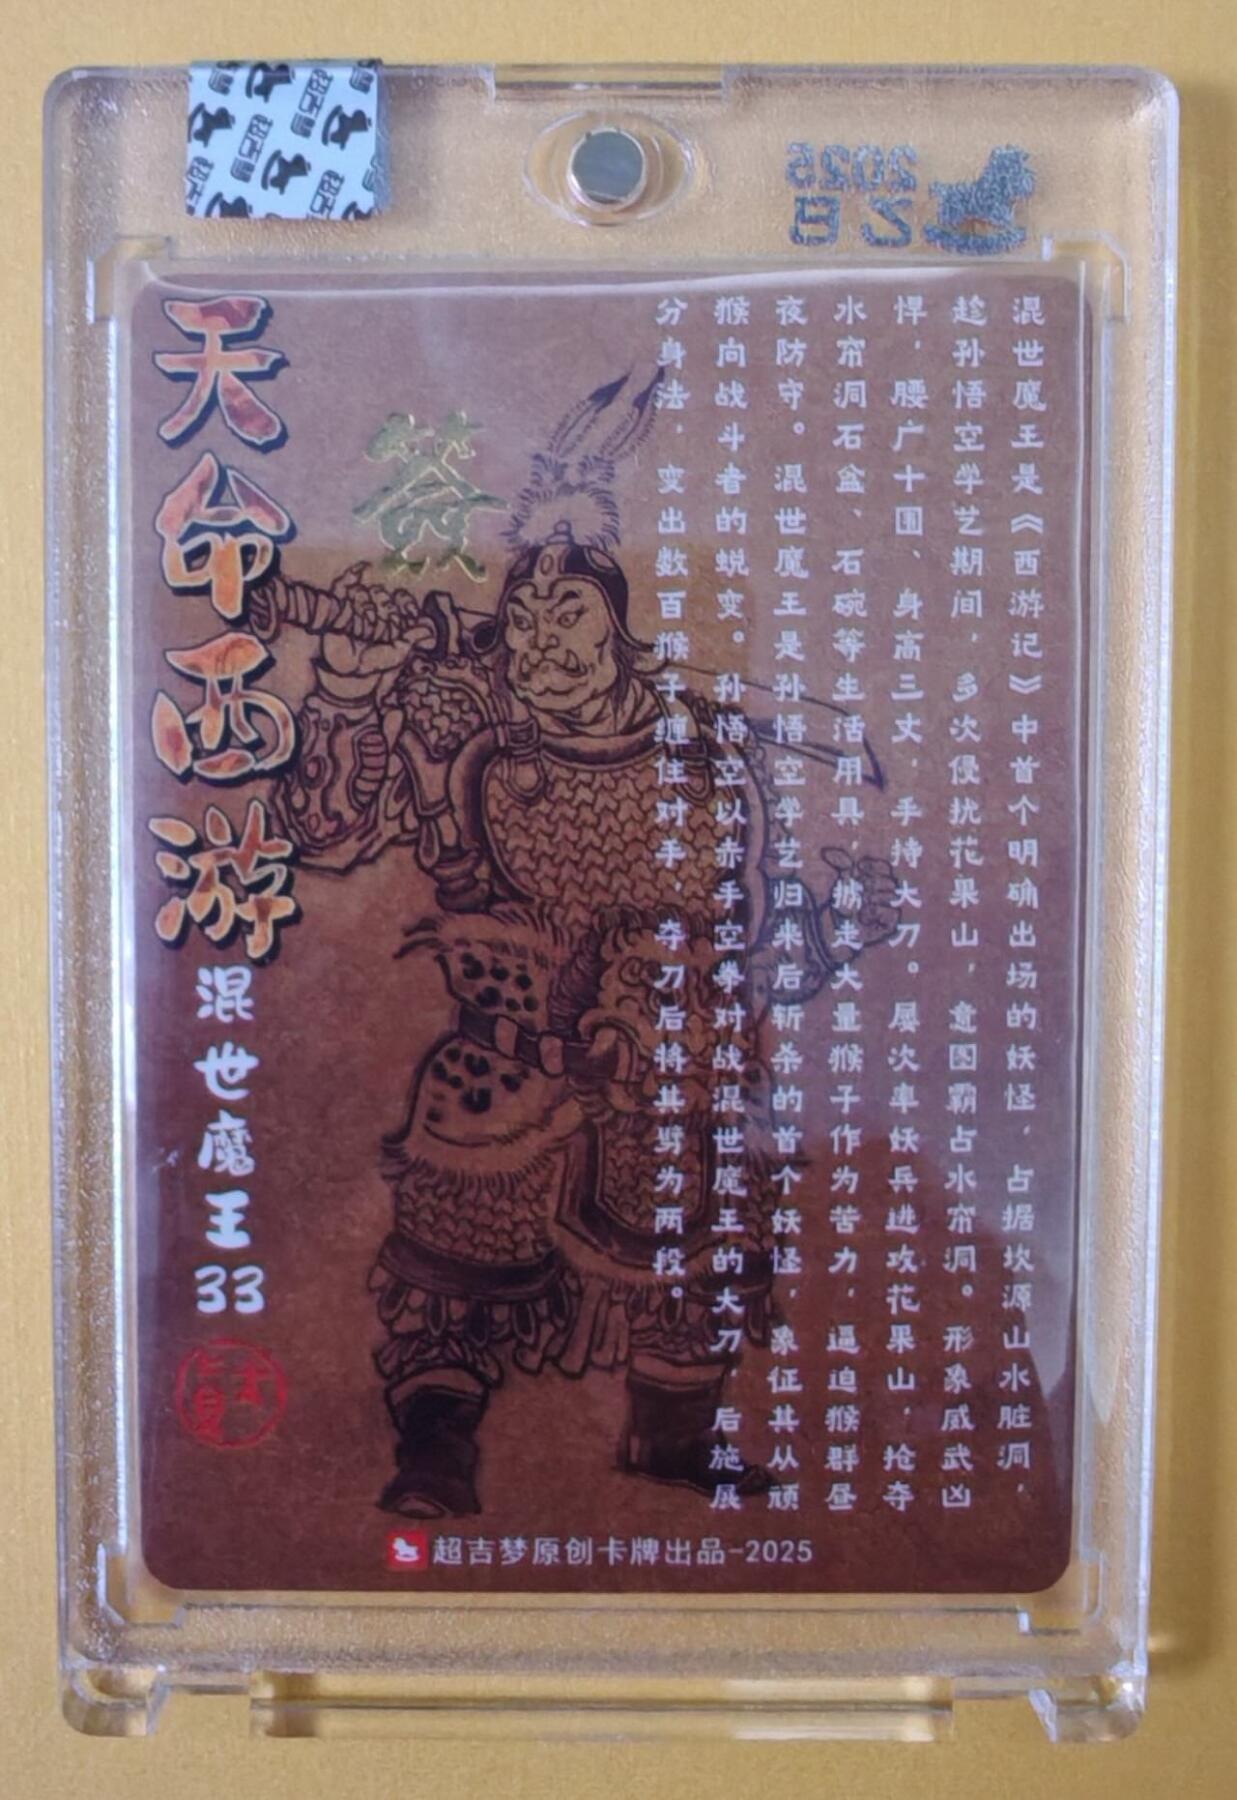 超吉梦
2025
乙巳
天命西游
混世魔王33
签
混世魔王是《西游记》中首个明确出场的妖怪，占据坎源山水脏洞，
趁孙悟空学艺期间，多次侵扰花果山，意图霸占水帘洞。形象威武凶
悍，腰广十围、身高三丈，手持大刀。屡次率妖兵进攻花果山，抢夺
水帘洞石盆、石碗等生活用具，掳走大量猴子作为苦力，逼迫猴群昼
夜防守。混世魔王是孙悟空学艺归来后斩杀的首个妖怪，象征其从顽
猴向战斗者的蜕变。孙悟空以赤手空拳对战混世魔王的大刀，后施展
分身法，变出数百猴子缠住对手，夺刀后将其劈为两段。
超吉梦原创卡牌出品-2025